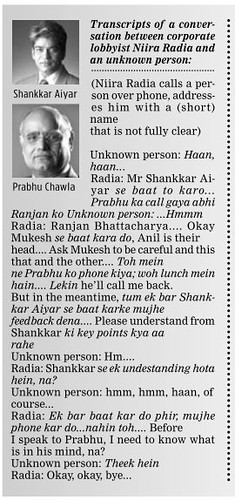 Transcripts of a conver-
sation between corporate
lobbyist Niira Radia and
an unknown person:
Shankkar Aiyar
Prabhu Chawla
(Niira Radia calls a per-
son over phone, address-
es him with a (short)
name
that is not fully clear)
Unknown person: Haan,
haan...
Radia: Mr Shankkar Ai-
yar se baat to karo...
Prabhu ka call gaya abhi
Ranjan ko Unknown person: ...Hmmm
Radia: Ranjan Bhattacharya.... Okay
Mukesh se baat kara do, Anil is their
head.... Ask Mukesh to be careful and this
that and the other.... Toh mein
ne Prabhu ko phone kiya; woh lunch mein
hain.... Lekin he'll call me back.
But in the meantime, tum ek bar Shank-
kar Aiyar se baat karke mujhe
feedback dena.... Please understand from
Shankkar ki key points kya aa
rahe
Unknown person: Hm....
Radia: Shankkar se ek undestanding hota
hein, na?
Unknown person: hmm, hmm, haan, of
course...
Radia: Ek bar baat kar do phir, mujhe
phone kar do...nahin toh.... Before
I speak to Prabhu, I need to know what
is in his mind, na?
Unknown person: Theek hein
Radia: Okay, okay, bye...